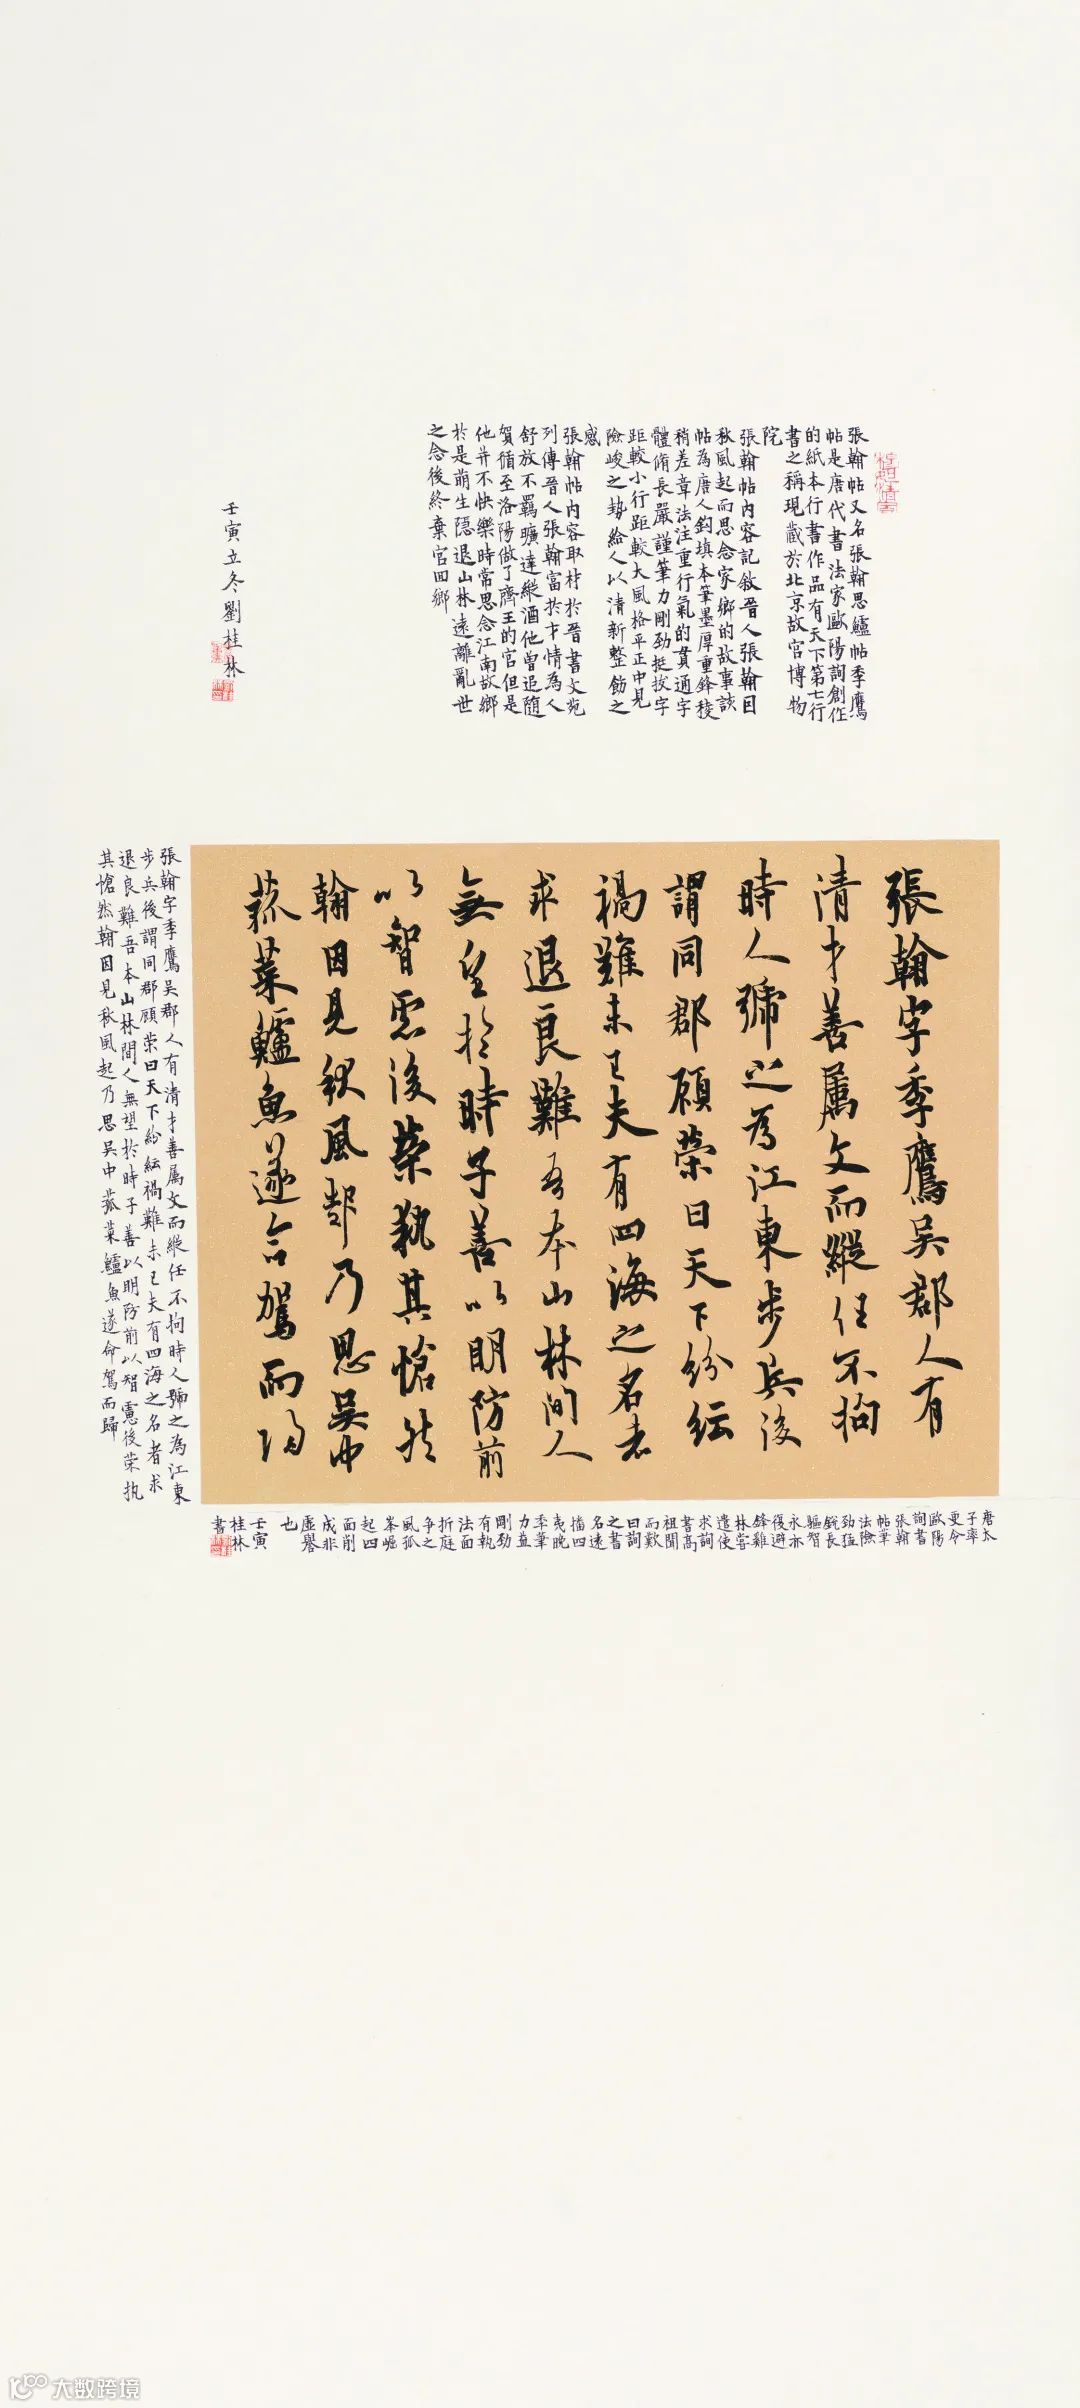 張翰帖又名張翰思鱸帖季鷹
帖是唐代書法家歐陽詢創作
的紙本行書作品有天下第七行
書之稱現藏於北京故宮博物
院
張翰帖內容記敘晉人張翰因
秋風起而思念家鄉的故事該
帖為唐人鈎填本筆墨厚重鋒稜
稍差章法注重行氣的貫通字
體脩長嚴謹筆力剛勁挺拔字
距較小行距較大風格平正中見
險峻之勢給人以清新整飭之
感
張翰帖內容取材於晉書文苑
列傳晉人張翰富於才情為人
舒放不羈曠達縱酒他曾追隨
賀循至洛陽做了齊王的官但是
他并不快樂時常思念江南故鄉
於是萌生隱退山林遠離亂世
之念後終棄官回鄉
壬寅立冬劉桂林
張翰字季鷹吳郡人有
清才善属文而縱任不拘
時人號之為江東步兵後
謂同郡顧榮曰天下紛紜
禍難未已夫有四海之名者
求退良難吾本山林間人
無望於時子善以明防前
以智慮後榮執其愴然
翰因見秋風起乃思吳中
菰菜鱸魚遂命駕而歸
張翰字季鷹吳郡人有清才善属文而縱任不拘時人號之為江東
步兵後謂同郡顧榮曰天下紛紜禍難未已夫有四海之名者求
退良難吾本山林間人無望於時子善以明防前以智慮後荣执
其愴然翰因見秋風起乃思吳中菰菜鱸魚遂命駕而歸
唐太
子率
更令
歐陽
詢書
張翰
帖筆
法險
劲猛
銳長
驅智
永亦
復避
鋒雞
林嘗
遣使
求詢
書高
祖聞
而歎
曰詢
之書
名遠
播四
夷晚
季筆
力益
剛劲
有執
法面
折庭
争之
風孤
峯崛
起四
面削
成非
虛譽
也
壬寅
桂林
書
大数跨境